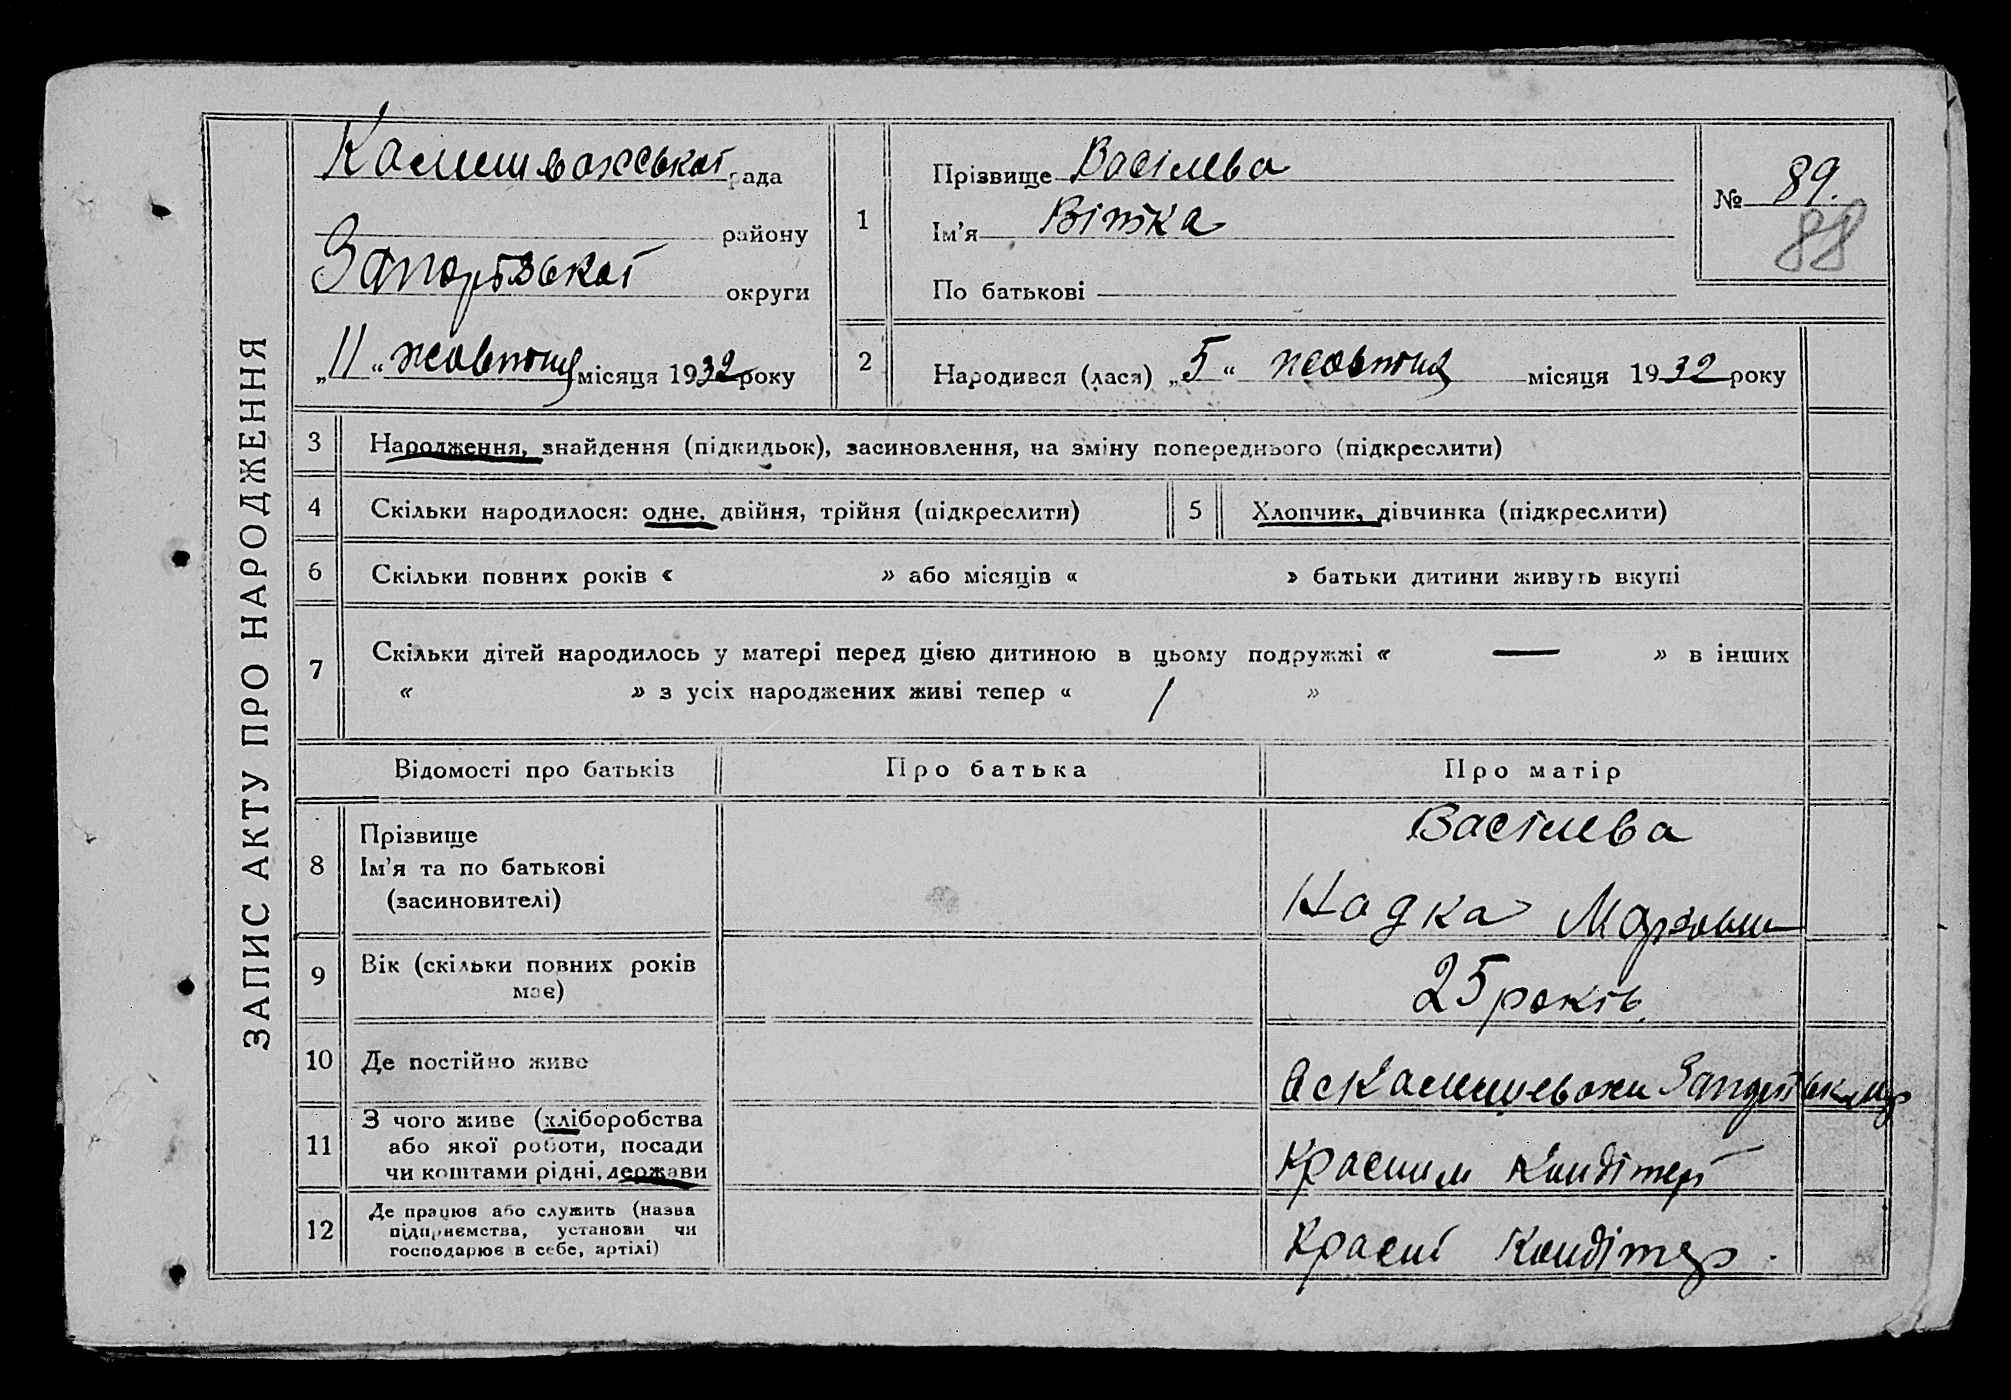 ЗАПИС АКТУ ПРО НАРОДЖЕННЯ
Камишважської рада
району
Запорізької округи
„11“ жовтня місяця 1932 року
1
Прізвище Васілева
Ім'я Вітка
По батькові
№ 89.
88
2
Народився (лася) „5“ жовтня місяця 1932 року
3 Народження, знайдення (підкидьок), засиновлення, на зміну попереднього (підкреслити)
4 Скільки народилося: одне, двійня, трійня (підкреслити)
5 Хлопчик, дівчинка (підкреслити)
6 Скільки повних років « » або місяців « » батьки дитини живуть вкупі
7 Скільки дітей народилось у матері перед цією дитиною в цьому подружжі « — » в інших
« » з усіх народжених живі тепер « / »
Відомості про батьків Про батька Про матір
8 Прізвище
Ім'я та по батькові
(засиновителі)
Васілева
Надка
9 Вік (скільки повних років
має)
25 років
10 Де постійно живе
11 З чого живе (хліборобства
або якої роботи, посади
чи коштами рідні, держави
Красним Кондітері
12 Де працює або служить (назва
підприємства, установи чи
господарює в себе, артілі)
Красні Кондітер.